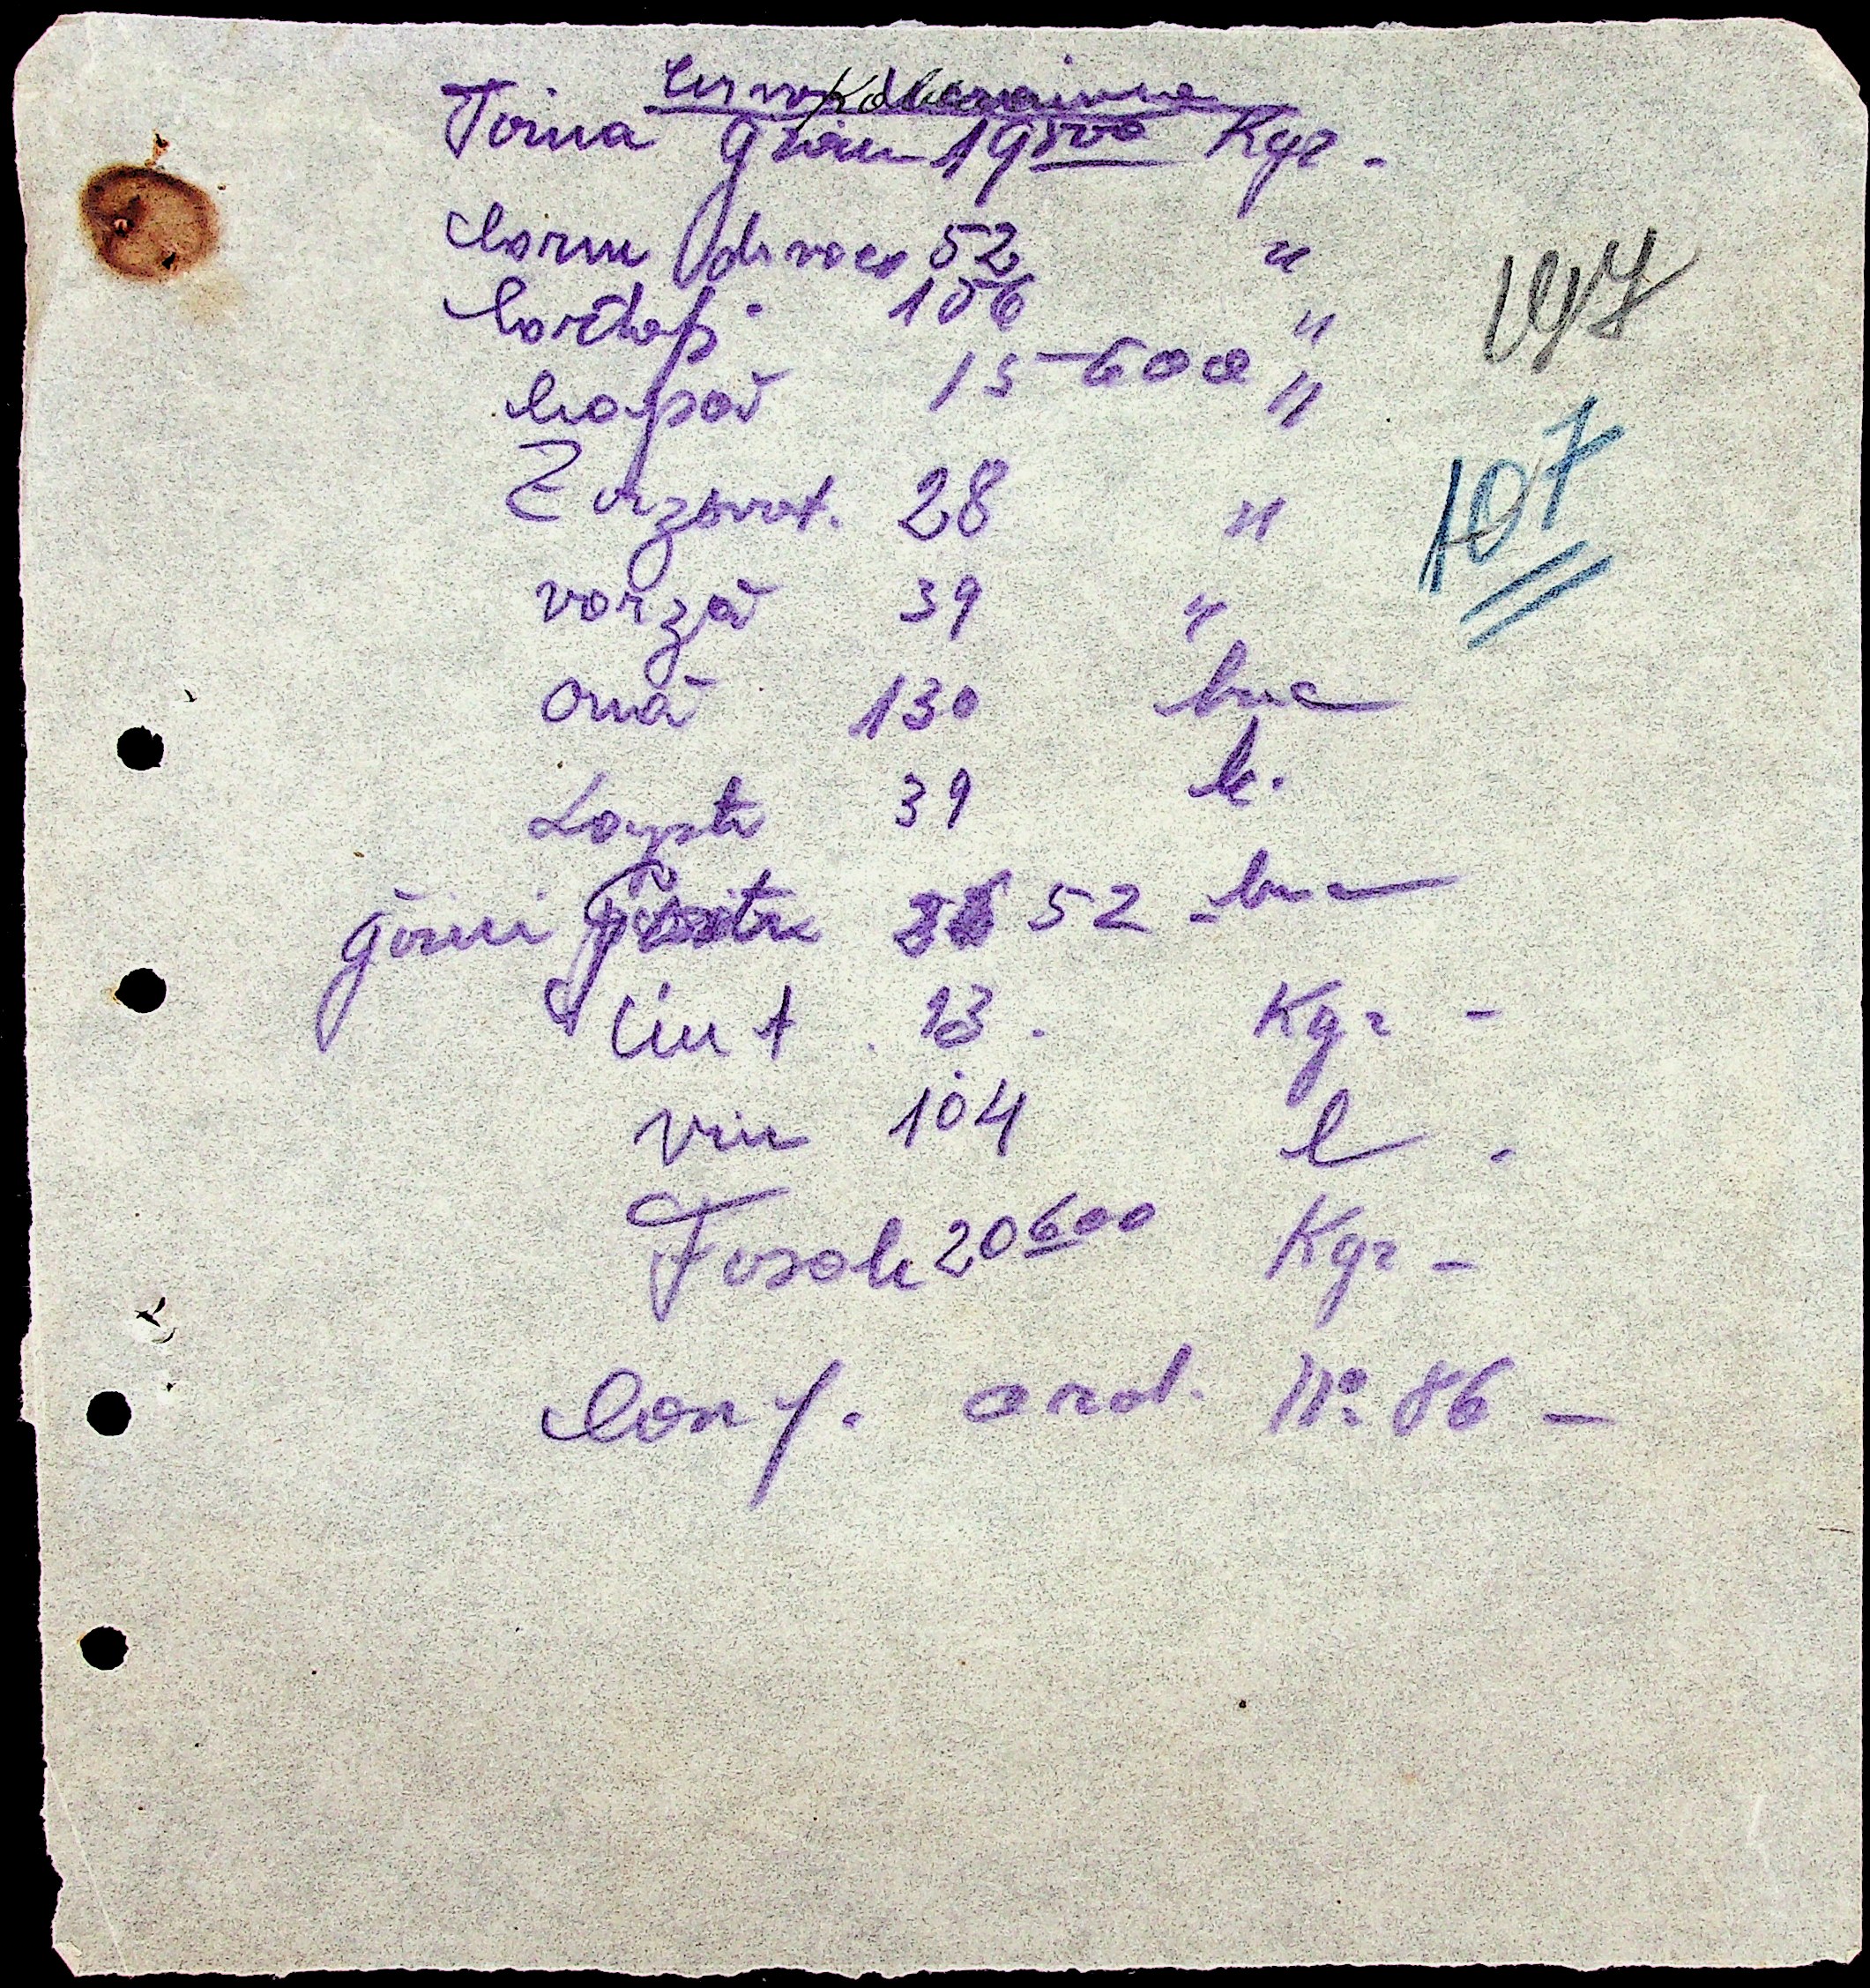 Faina Grâu 19500 Kgr -
Carne de vaca 52 "
Cartofi. 106 "
Ceapă 15-600 "
Zarzavat. 28 "
varză 39 "
ouă 130 buc
Lapte 39 l.
găini 52 - buc
Unt 13. Kgr -
vin 104 l .
Fasole 20600 Kgr -
Conf. ord. No 86 -
197
107